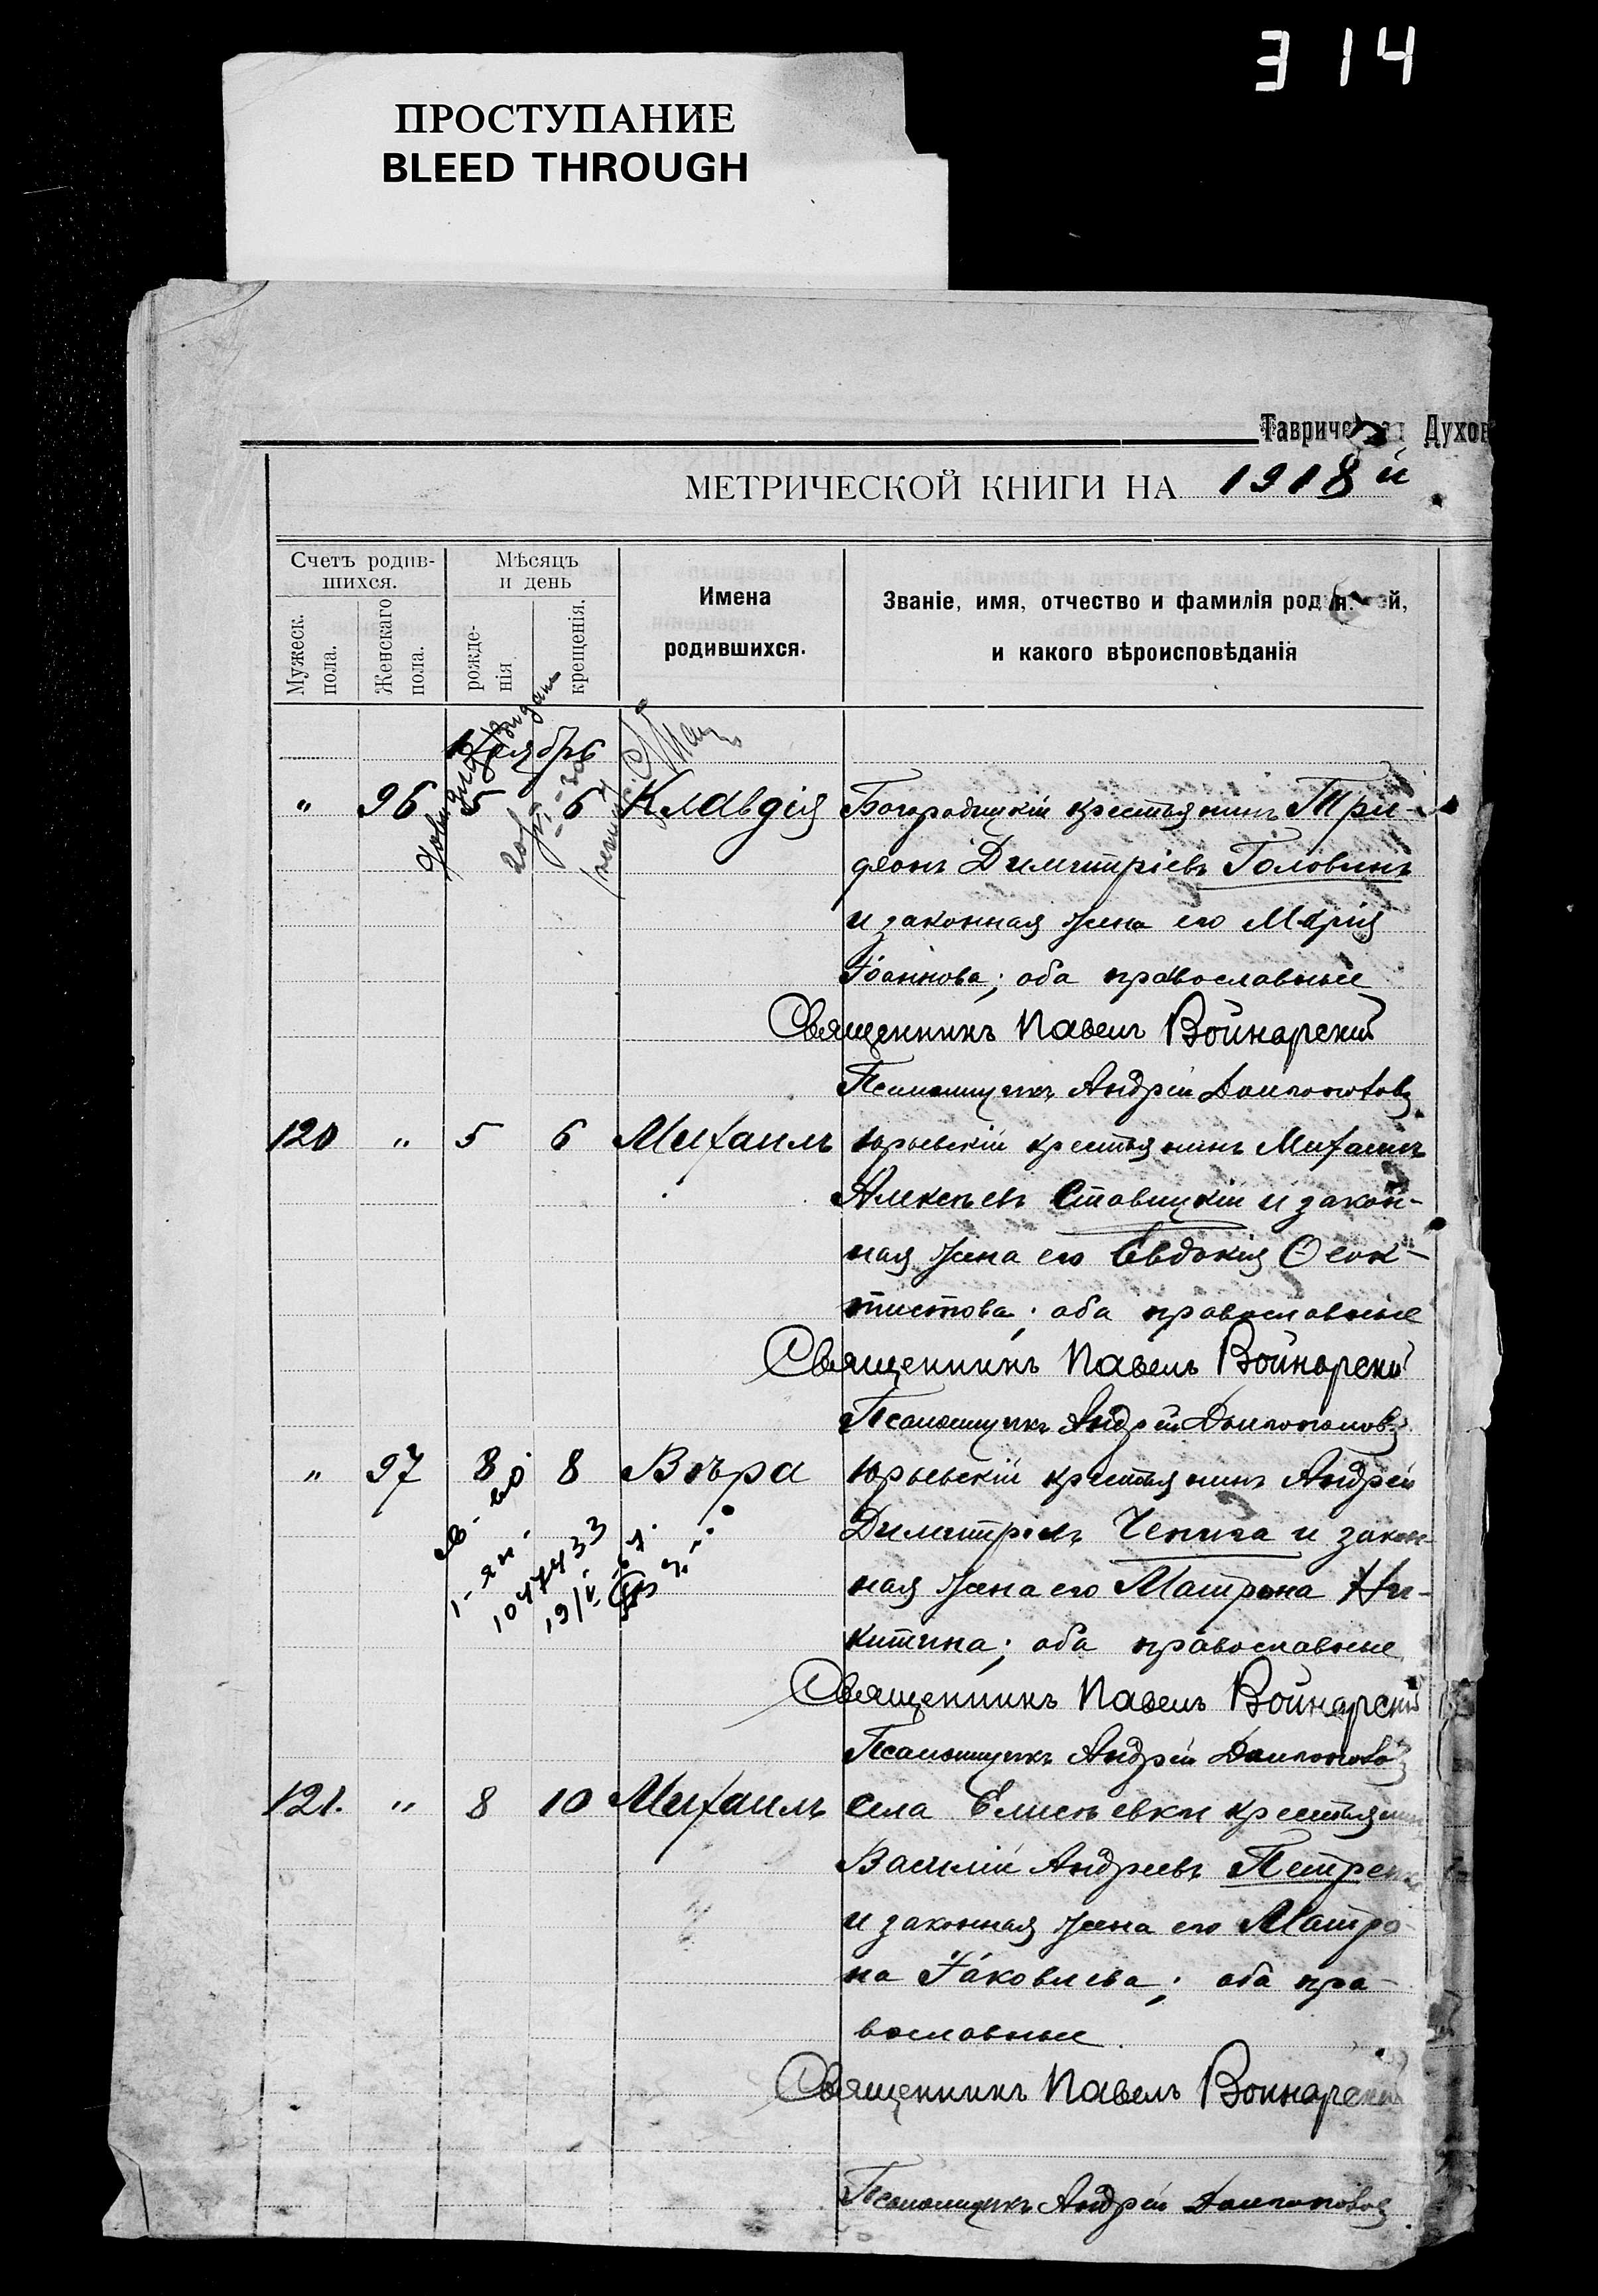 314
ПРОСТУПАНИЕ
BLEED THROUGH
Духов
МЕТРИЧЕСКОЙ КНИГИ НА 1918й
Счетъ родив-
шихся.
Мужеск.
пола.
Женскаго
пола.
Мѣсяцъ
и день
рожде-
нія
крещенія.
Имена
родившихся.
Званіе, имя, отчество и фамилія
и какого вѣроисповѣданія
Ноябрь
" 96 5 6 Клавдія Богородицкій крестьянинъ Три-
фонъ Димитріевъ Головинъ
и законная жена его Марія
Іоаннова; оба православные
Священникъ Павелъ Войнарскій
Псаломщикъ Андрей
120 " 5 6 Михаилъ Юрьевскій крестьянинъ Михаилъ
Алексѣевъ Ставицкій и закон-
ная жена его Евдокія Ѳеок-
тистова; оба православные
Священникъ Павелъ Войнарскій
Псаломщикъ Андрей
" 97 8 8 Вѣра Юрьевскій крестьянинъ Андрей
Димитріевъ Чепига и закон-
ная жена его Матрона Ни-
китина; оба православные
1047433
Священникъ Павелъ Войнарскій
Псаломщикъ Андрей
121. " 8 10 Михаилъ села Елисѣевки крестьянинъ
Василій Андреевъ
и законная жена его Матро-
на Іаковлева; оба пра-
вославные
Священникъ Павелъ Войнарскій
Псаломщикъ Андрей